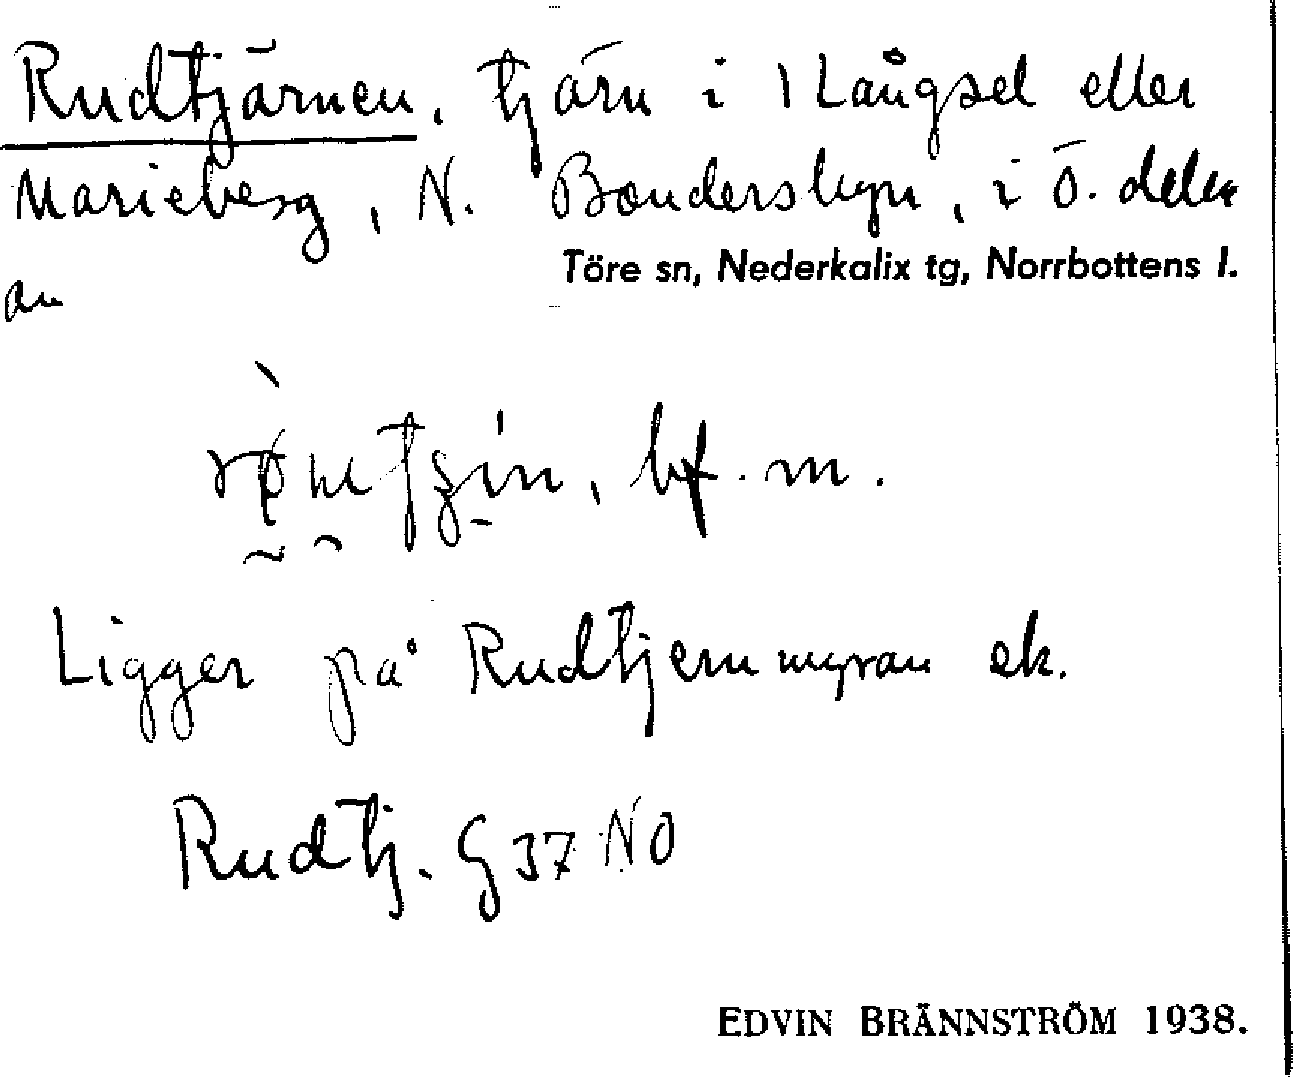 Rudtjärnen, tjärn i 1 Långsel eller
Marieberg, N. Bondersbyn, i Ö. delen
Töre sn, Nederkalix tg, Norrbottens l.
bf. m.
Ligger på Rudtjernmyran ek.
Rudtj. G 37 NO
EDVIN BRÄNNSTRÖM 1938.